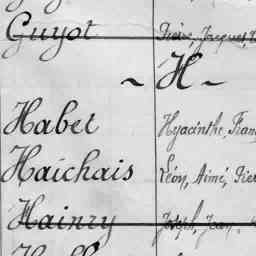 Guyot Pierre, Jacques,
~ H ~
Habet Hyacinthe, Fran
Haichais Léon, Aimé, Pier
Hainry Joseph, Jean,